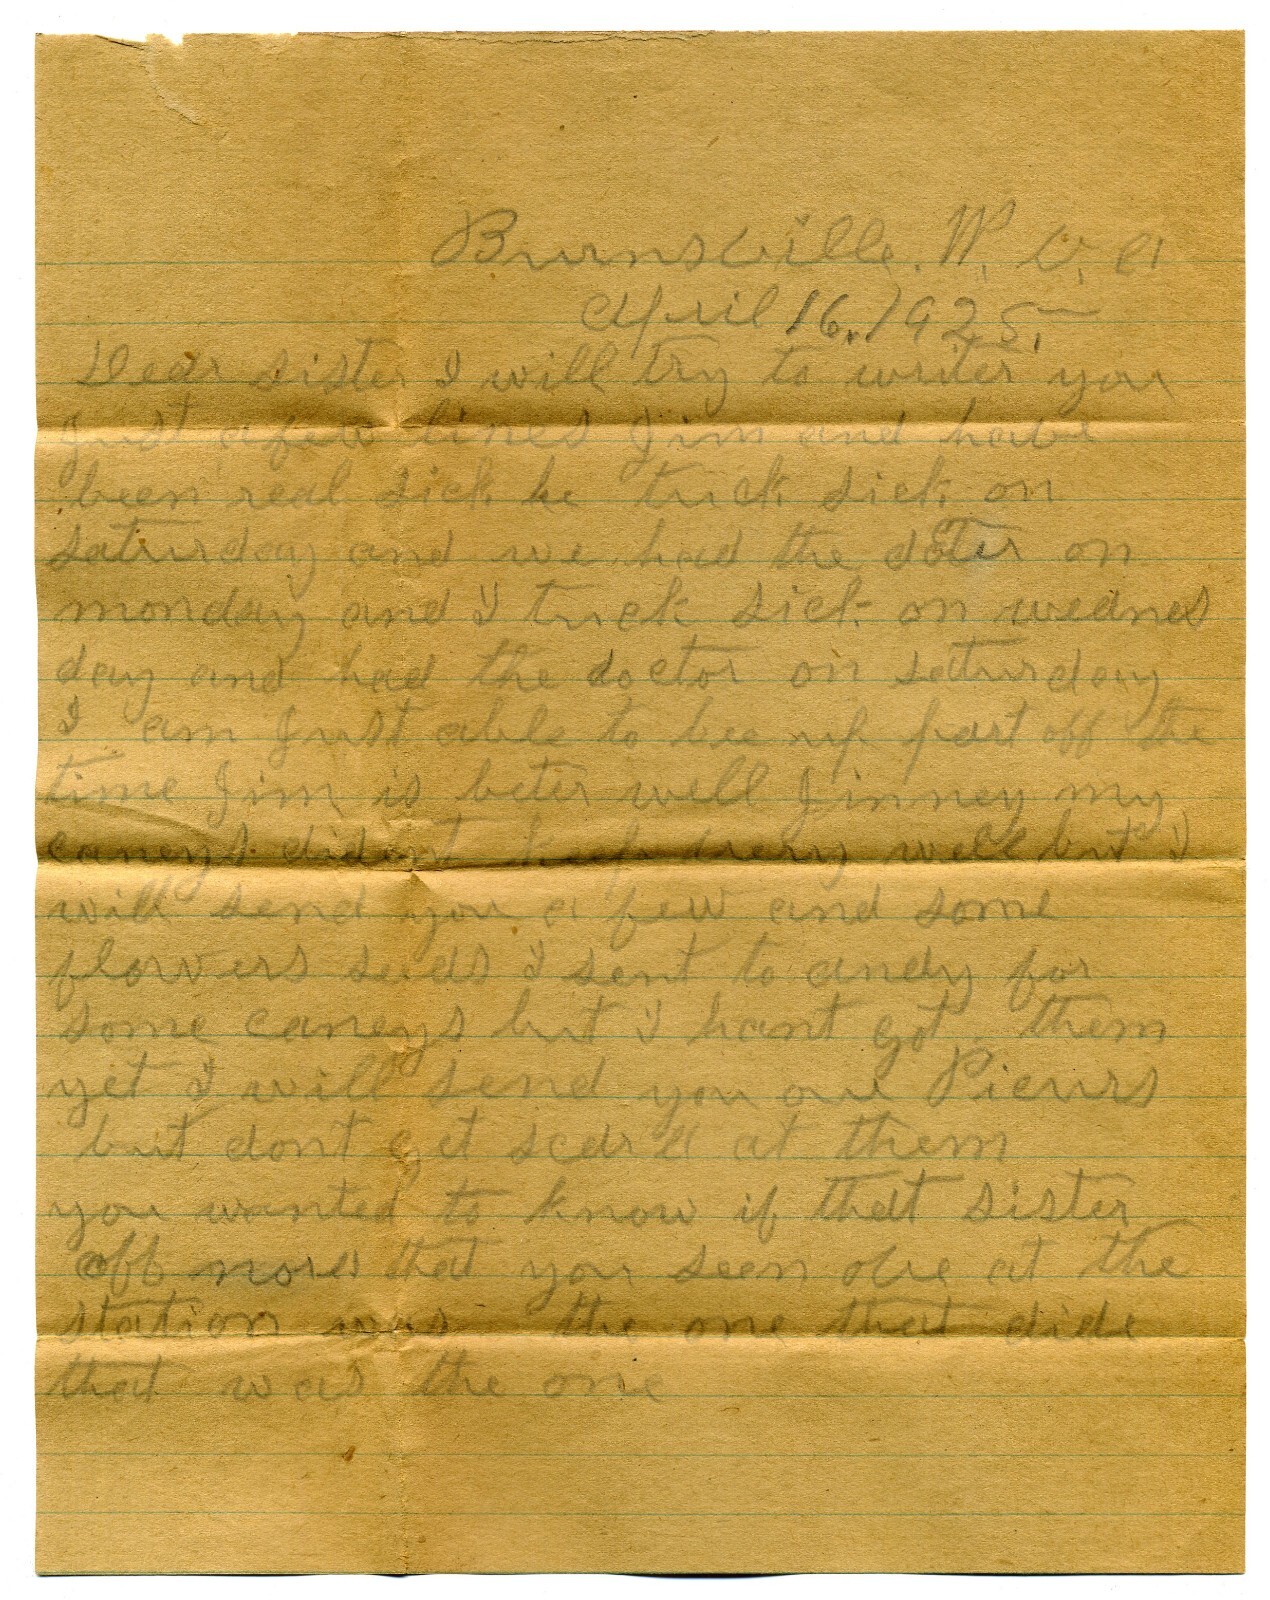 Burnsville. W. V. A
April 16. 1925.
Dear sister I will try to writer you
Just a few lines Jim and have
been real sick he tuck sick on
saturday and we had the docter on
monday and I tuck sick on wednes
day and had the doctor on saturday
I am Just able to bee up part off the
time Jim is beter well Jinney my
caneys dident keep very well but I
will send you a few and some
flowers seeds I sent to andy for
some caneys but I hant got them
yet I will send you our Picurs
but dont get scard at them
you wanted to know if that sister
off that you seen at the
station was the one that dide
that was the one